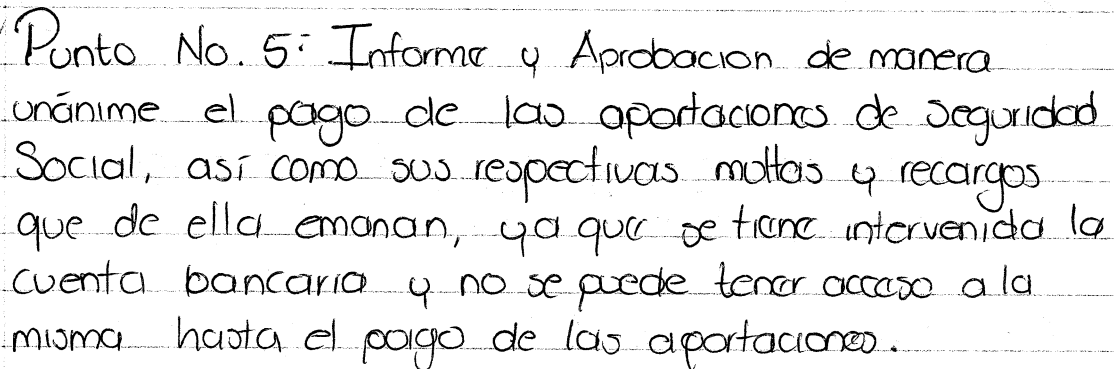 Punto No. 5: Informe y Aprobacion de manera
unánime el pago de las aportaciones de seguridad
Social, así como sus respectivas multas y recargos
que de ella emanan, ya que se tiene intervenida la
cuenta bancaria y no se puede tener acceso a la
misma hasta el pago de las aportaciones.